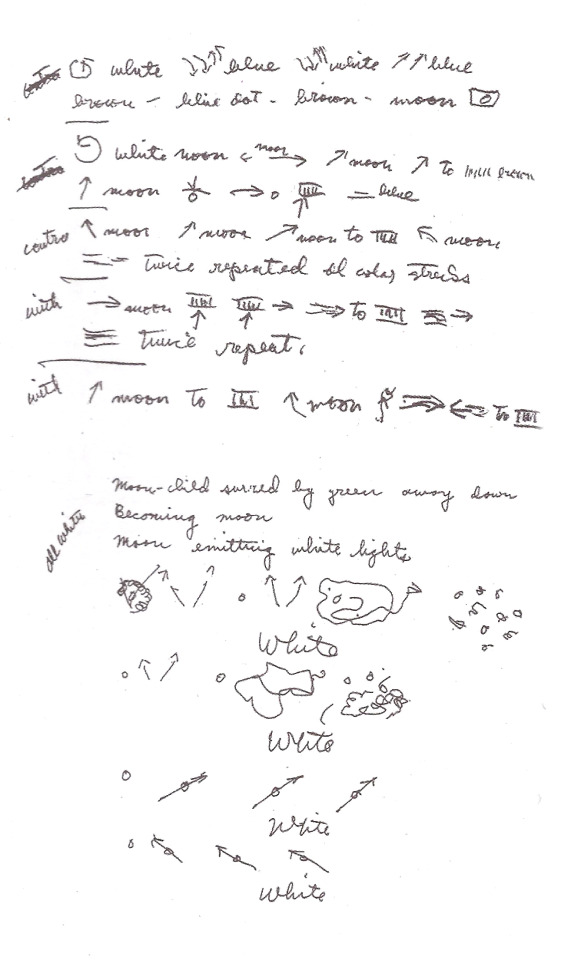 white blue white blue
brown - blue dot - brown - moon
white moon moon moon to brown
moon = blue
contra moon moon moon to moon
twice repeated
with moon to
twice repeat
with moon to moon to
Moon-child by green away down
Becoming moon
Moon emitting white lights
all white
White
White
White
White